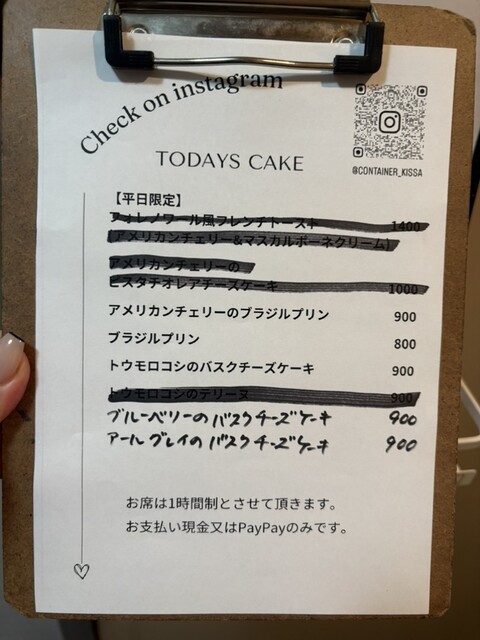 Check on instagram
@CONTAINER_KISSA
TODAYS CAKE
【平日限定】
フォレノワール風フレンチトースト 1400
(アメリカンチェリー&マスカルポーネクリーム)
アメリカンチェリーの
ピスタチオレアチーズケーキ 1000
アメリカンチェリーのブラジルプリン 900
ブラジルプリン 800
トウモロコシのバスクチーズケーキ 900
トウモロコシのテリーヌ 900
ブルーベリーのバスクチーズケーキ 900
アールグレイのバスクチーズケーキ 900
お席は1時間制とさせて頂きます。
お支払い現金又はPayPayのみです。